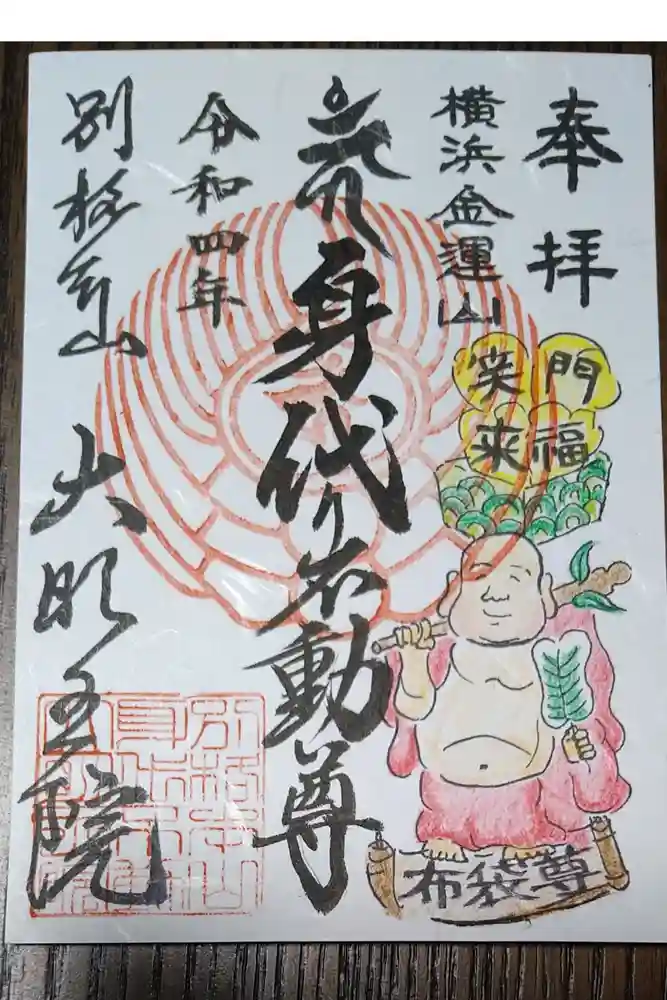 奉拝
横浜金運山
笑門
来福
布袋尊
身代り不動尊
令和四年
別格本山
大明王院
別格本山